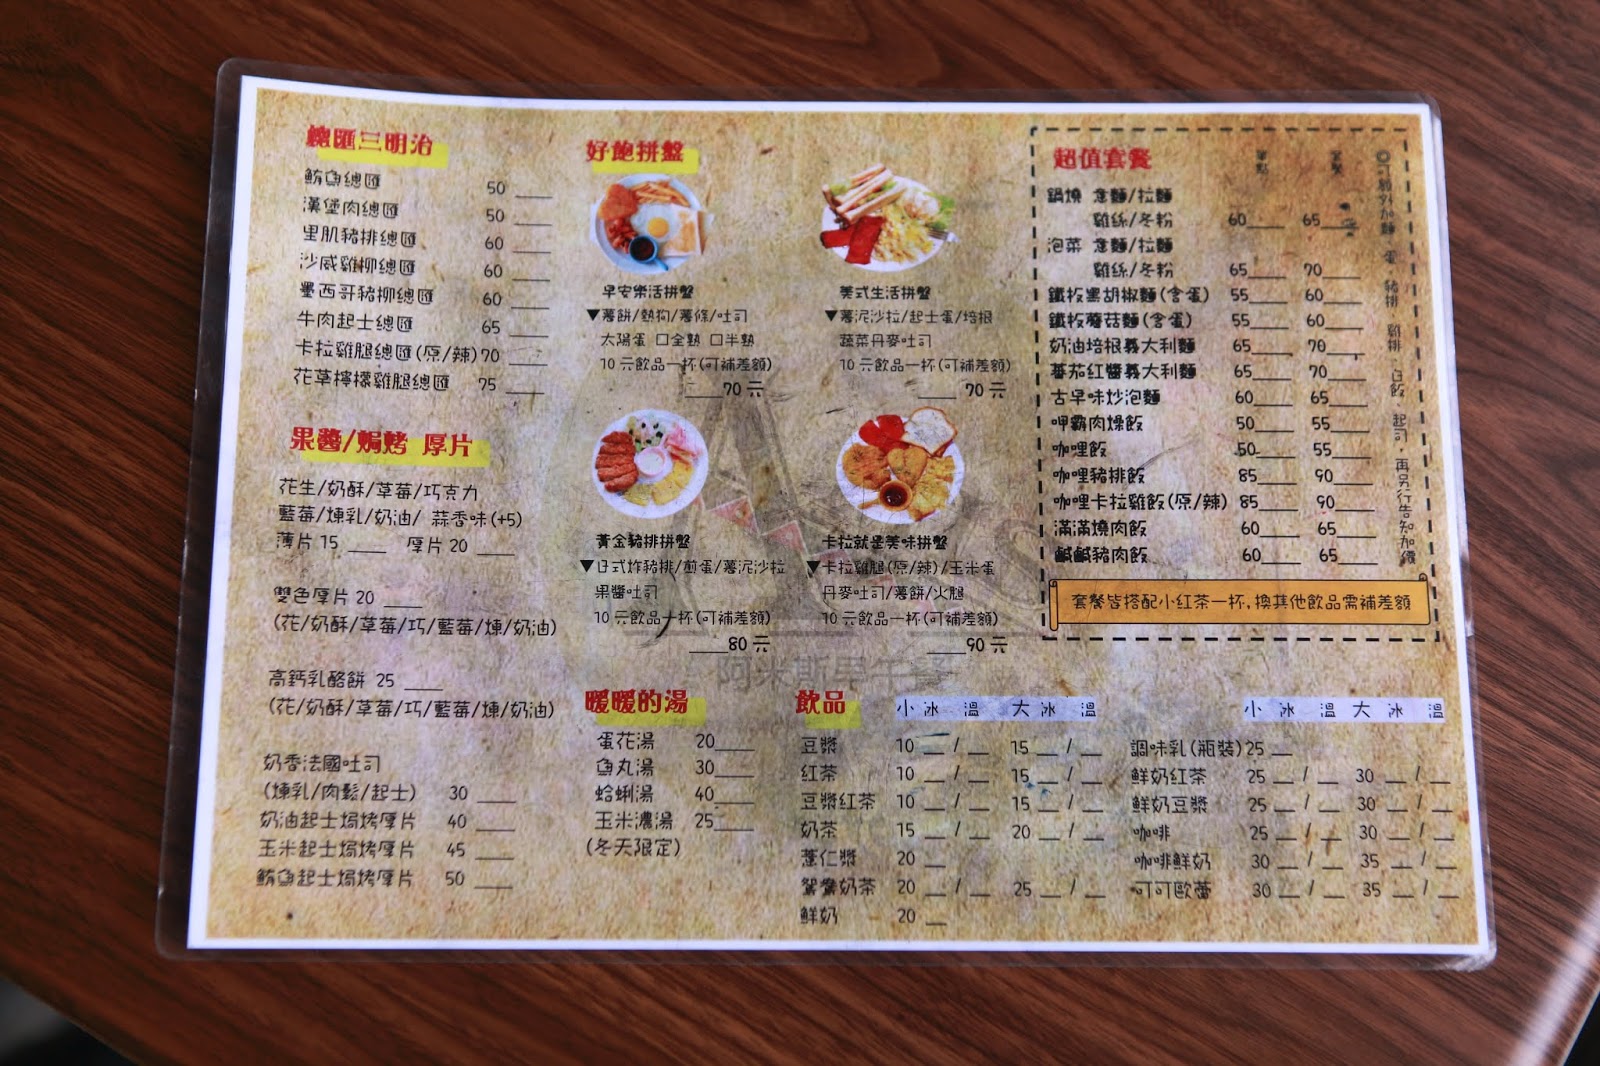 總匯三明治
鮪魚總匯 50
漢堡肉總匯 50
里肌豬排總匯 60
沙威雞柳總匯 60
墨西哥豬柳總匯 60
牛肉起士總匯 65
卡拉雞腿總匯(原/辣) 70
花草檸檬雞腿總匯 75
果醬/焗烤 厚片
花生/奶酥/草莓/巧克力
藍莓/煉乳/奶油/ 蒜香味(+5)
薄片 15 ____ 厚片 20 ____
雙色厚片 20 ____
(花/奶酥/草莓/巧/藍莓/煉/奶油)
高鈣乳酪餅 25 ____
(花/奶酥/草莓/巧/藍莓/煉/奶油)
奶香法國吐司
(煉乳/肉鬆/起士) 30 ____
奶油起士焗烤厚片 40 ____
玉米起士焗烤厚片 45 ____
鮪魚起士焗烤厚片 50 ____
好飽拼盤
早安樂活拼盤
▼薯餅/熱狗/薯條/吐司
太陽蛋 □全熟 □半熟
10 元飲品一杯(可補差額)
____70 元
美式生活拼盤
▼薯泥沙拉/起士蛋/培根
蔬菜丹麥吐司
10 元飲品一杯(可補差額)
____ 70 元
黃金豬排拼盤
▼日式炸豬排/煎蛋/薯泥沙拉
果醬吐司
10 元飲品一杯(可補差額)
____80 元
卡拉就是美味拼盤
▼卡拉雞腿(原/辣)/玉米蛋
丹麥吐司/薯餅/火腿
10 元飲品一杯(可補差額)
____90 元
阿米斯早午餐
暖暖的湯
蛋花湯 20____
魚丸湯 30____
蛤蜊湯 40____
玉米濃湯 25____
(冬天限定)
飲品
小 冰 溫 大 冰 溫
豆漿 10 __ / __ 15 __ / __
紅茶 10 __ / __ 15 __ / __
豆漿紅茶 10 __ / __ 15 __ / __
奶茶 15 __ / __ 20 __ / __
薏仁漿 20 __
鴛鴦奶茶 20 __ / __ 25 __ / __
鮮奶 20 __
小 冰 溫 大 冰 溫
調味乳(瓶裝) 25 __
鮮奶紅茶 25 __ / __ 30 __ / __
鮮奶豆漿 25 __ / __ 30 __ / __
咖啡 25 __ / __ 30 __ / __
咖啡鮮奶 30 __ / __ 35 __ / __
可可歐蕾 30 __ / __ 35 __ / __
超值套餐
鍋燒 意麵/拉麵
雞絲/冬粉 60____ 65____
泡菜 意麵/拉麵
雞絲/冬粉 65____ 70____
鐵板黑胡椒麵(含蛋) 55____ 60____
鐵板蘑菇麵(含蛋) 55____ 60____
奶油培根義大利麵 65____ 70____
蕃茄紅醬義大利麵 65____ 70____
古早味炒泡麵 60____ 65____
呷霸肉燥飯 50____ 55____
咖哩飯 50____ 55____
咖哩豬排飯 85____ 90____
咖哩卡拉雞飯(原/辣) 85____ 90____
滿滿燒肉飯 60____ 65____
鹹鹹豬肉飯 60____ 65____
◎可額外加麵、蛋、豬排、雞排、白飯、起司，再另行告知加價
套餐皆搭配小紅茶一杯,換其他飲品需補差額